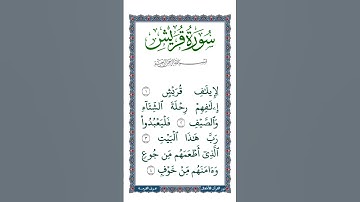 سُورَةُ قُرَيْشٍ
بِسْمِ اللَّهِ الرَّحْمَٰنِ الرَّحِيمِ
لِإِيلَٰفِ قُرَيْشٍ ١
إِۦلَٰفِهِمْ رِحْلَةَ الشِّتَآءِ
وَالصَّيْفِ ٢ فَلْيَعْبُدُوا۟
رَبَّ هَٰذَا الْبَيْتِ ٣
الَّذِىٓ أَطْعَمَهُم مِّن جُوعٍ
وَءَامَنَهُم مِّنْ خَوْفٍۭ ٤